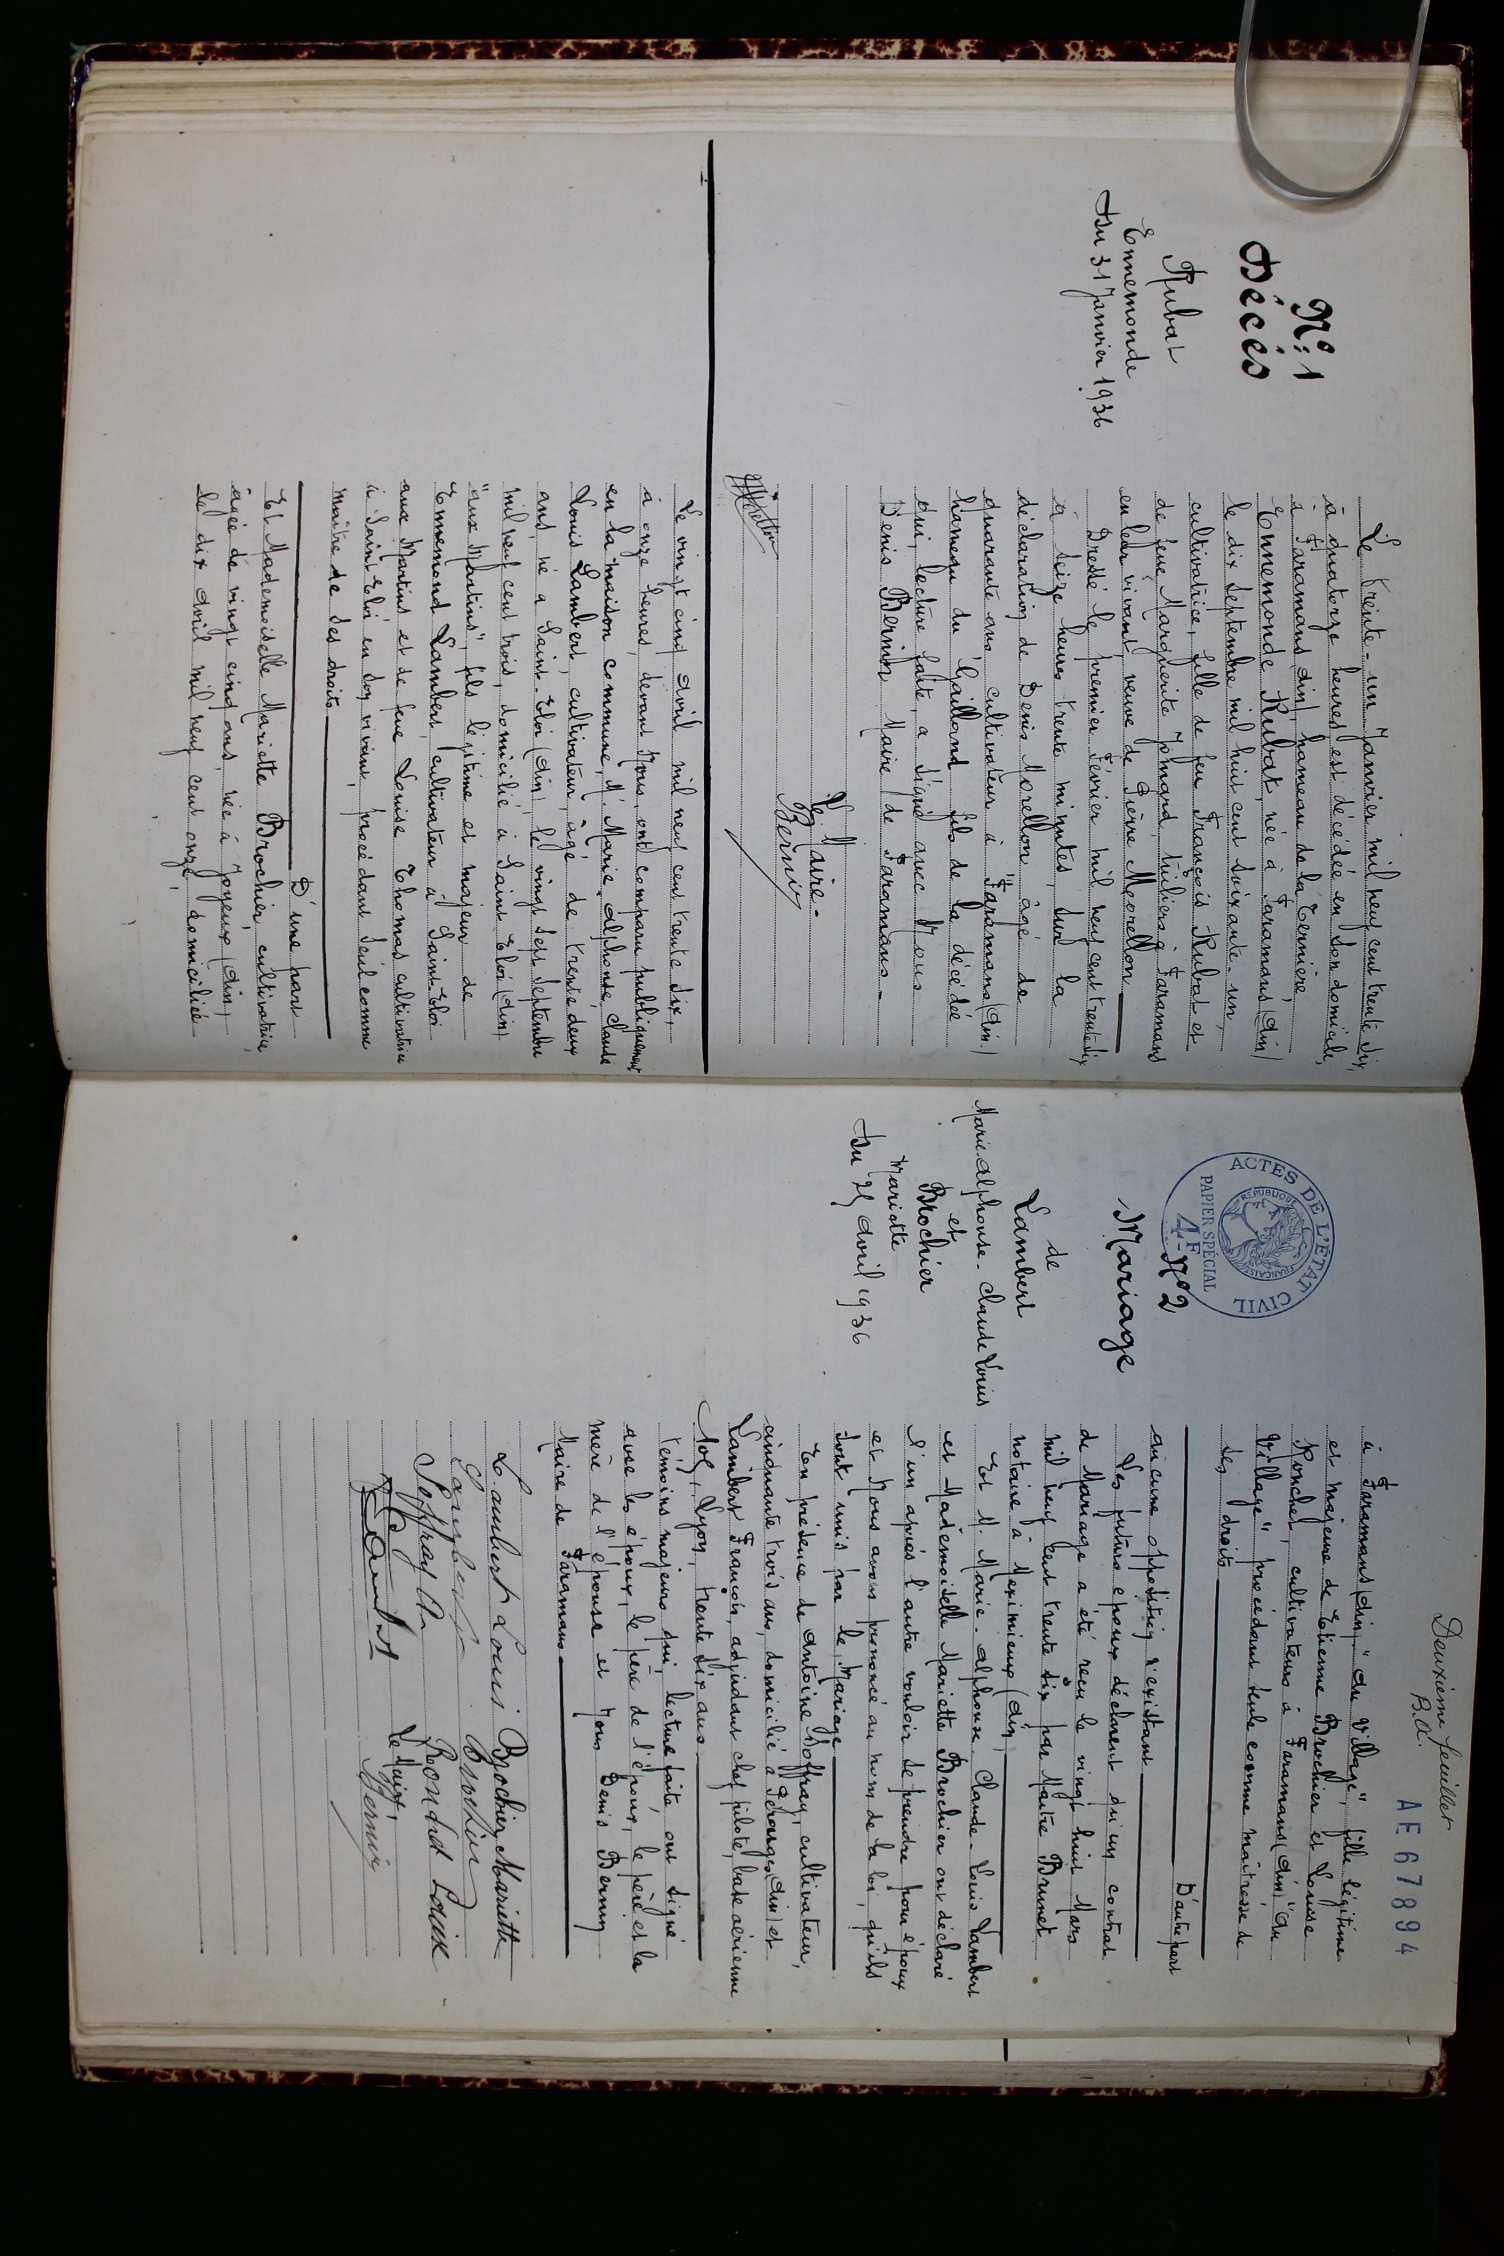 N° 1
Décès
Rubat
Ennemonde
Du 31 Janvier 1936
Le trente-un Janvier mil neuf cent trente six,
à quatorze heures est décédée en son domicile,
à Faramans (Ain), hameau de la Ternière,
Ennemonde Rubat, née à Faramans (Ain)
le dix septembre mil huit cent soixante-un,
cultivatrice, fille de feu François Rubat et
de feue Marguerite Jomard, tuiliers à Faramans
en leur vivant, veuve de Pierre Morellon
Dressé le premier Février mil neuf cent trente six
à seize heures trente minutes, sur la
déclaration de Denis Morellon âgé de
quarante ans, cultivateur à Faramans (Ain)
hameau du Gaillard fils de la décédée
qui, lecture faite, a signé avec Nous
Denis Bernin Maire de Faramans-
Le Maire-
Bernin
Morellon
Le vingt cinq avril mil neuf cent trente six,
à onze heures, devant Nous, ont comparu publiquement
en la maison commune, M. Marie-Alphonse, Claude
Louis Lambert, cultivateur, âgé de trente deux
ans, né à Saint-Eloi (Ain) le vingt sept septembre
mil neuf cent trois, domicilié à Saint-Eloi (Ain)
"aux Martins", fils légitime et majeur de
Ennemond Lambert, cultivateur à Saint-Eloi
aux Martins et de feue Louise Thomas cultivatrice
à Saint-Eloi en son vivant, procédant seul comme
maître de ses droits
D'une part
Et Mademoiselle Mariette Brochier, cultivatrice,
âgée de vingt cinq ans, née à Joyeux (Ain)
le dix avril mil neuf cent onze, domiciliée
Deuxième feuillet
B.A.
AE67894
ACTES DE L'ÉTAT CIVIL
RÉPUBLIQUE FRANÇAISE
PAPIER SPÉCIAL
4F
N° 2
Mariage
de
Lambert
Marie-Alphonse-Claude Louis
et
Brochier
Mariette
Du 25 Avril 1936
à Faramans (Ain) "Au village", fille légitime
et majeure de Etienne Brochier et Louise
Ponchet, cultivateurs à Faramans (Ain) "Au
Village" procédant seule comme maîtresse de
ses droits
D'autre part
aucune opposition n'existant
Les futurs époux déclarent qu'un contrat
de Mariage a été reçu le vingt huit Mars
mil neuf cent trente six par Maître Brunet
notaire à Meximieux (Ain)
Et M. Marie-Alphonse, Claude-Louis Lambert
et Mademoiselle Mariette Brochier ont déclaré
l'un après l'autre vouloir se prendre pour époux
et Nous avons prononcé au nom de la loi, qu'ils
sont unis par le Mariage
En présence de Antoine Soffray, cultivateur,
cinquante trois ans, domicilié à Pérouges (Ain) et
Lambert François, adjudant chef pilote, base aérienne
105, Lyon, trente six ans
témoins majeurs qui, lecture faite ont signé
avec les époux, le père de l'époux, le père et la
mère de l'épouse et Nous Denis Bernin
Maire de Faramans
Lambert Louis Brochier Mariette
Lambert Brochier
Soffray An Ponchet Louise
Lambert Le Maire,
Bernin